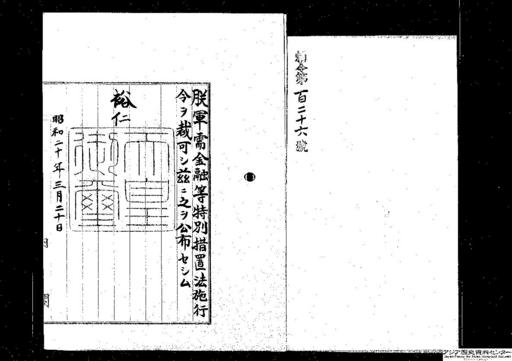 勅令第百二十六號
朕軍需金融等特別措置法施行
令ヲ裁可シ茲ニ之ヲ公布セシム
裕仁
天皇
御璽
昭和二十年三月二十日
内
閣
アジア歴史資料センター